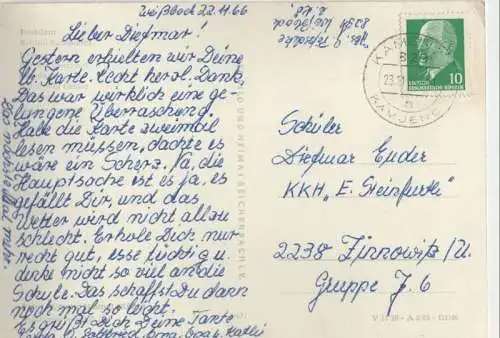 Weißbach 22.11.66
Lieber Diegmar!
Gestern erhielten wir Deine
lb. Karte. Recht herzl. Dank.
Das war wirklich eine ge-
lungene Überraschung.
Habe die Karte zweimal
lesen müssen, dachte es
wäre ein Scherz. Na, die
Hauptsache ist es ja, es
gefällt Dir, und das
Wetter wird nicht allzu
schlecht. Erhole Dich nur
recht gut, esse tüchtig u.
denke nicht so viel an die
Schule. Das schaffst Du dann
noch mal so leicht.
Es grüßt Dich Deine Tante
Oma, Opa u.
mehr.
Abs.
8291
KAMENZ
KAMJENC
10
DEUTSCHE
DEMOKRATISCHE REPUBLIK
BILD UND HEIMAT REICHENBACH I. V.
Schüler
Diegmar Euder
KKH „E. Steinfurth“
2238 Zinnowitz/U.
Gruppe J. 6
DDR